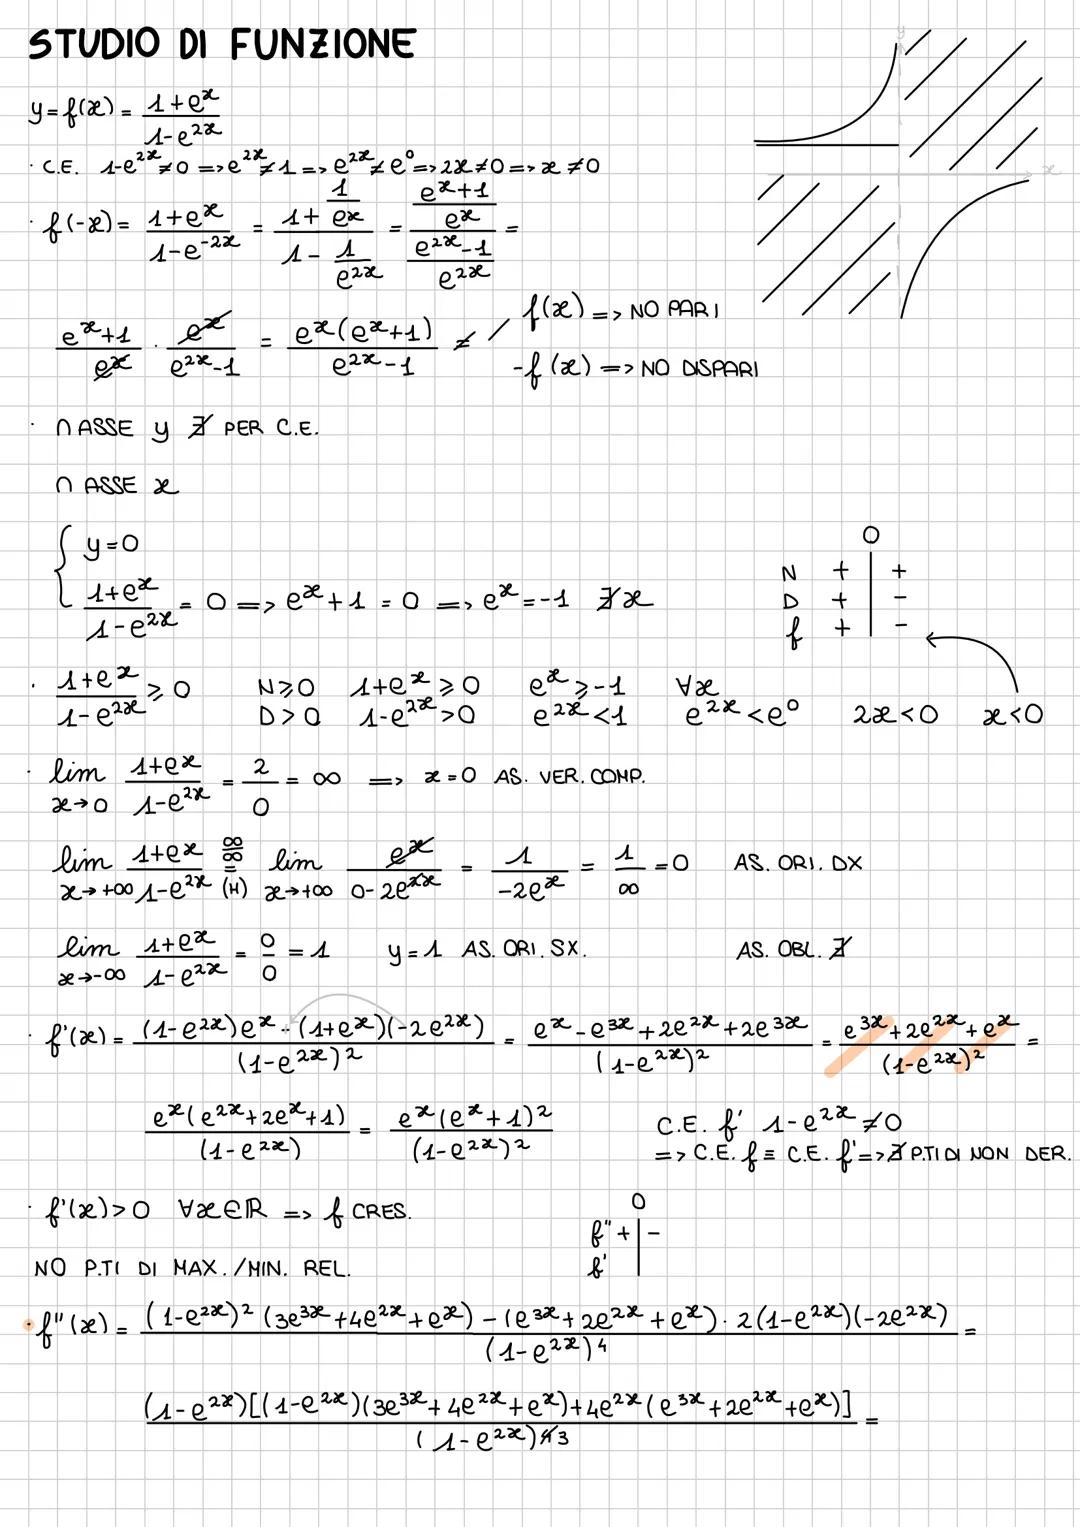 STUDIO DI FUNZIONE
y
x
y = f(x) = (1+e^x)/(1-e^2x)
· C.E. 1-e^2x ≠ 0 => e^2x ≠ 1 => e^2x ≠ e^0 => 2x ≠ 0 => x ≠ 0
· f(-x) = (1+e^x)/(1-e^-2x) = (1+ 1/e^x)/(1- 1/e^2x) = ((e^x+1)/e^x)/((e^2x-1)/e^2x) =
(e^x+1)/e^x · e^x/(e^2x-1) = e^x(e^x+1)/(e^2x-1) ≠ / f(x) => NO PARI
-f(x) => NO DISPARI
· ∩ ASSE y ∄ PER C.E.
∩ ASSE x
{ y=0
(1+e^x)/(1-e^2x) = 0 => e^x+1 = 0 => e^x = -1 ∄x
0
N + | +
D + | -
f + | -
· (1+e^x)/(1-e^2x) ⩾ 0 N⩾0 1+e^x ⩾ 0 e^x ⩾ -1 ∀x
D>0 1-e^2x >0 e^2x <1 e^2x < e^0 2x<0 x<0
· lim x→0 (1+e^x)/(1-e^2x) = 2/0 = ∞ => x=0 AS. VER. COMP.
lim x→+∞ (1+e^x)/(1-e^2x) ∞/∞ = (H) lim x→+∞ e^x/(0-2e^2x) = 1/(-2e^x) = 1/∞ = 0 AS. ORI. DX
lim x→-∞ (1+e^x)/(1-e^2x) = 0/0 = 1 y=1 AS. ORI. SX. AS. OBL. ∄
· f'(x) = ((1-e^2x)e^x - (1+e^x)(-2e^2x))/(1-e^2x)^2 = (e^x - e^3x + 2e^2x + 2e^3x)/(1-e^2x)^2 = (e^3x + 2e^2x + e^x)/(1-e^2x)^2 =
e^x(e^2x+2e^x+1)/(1-e^2x) = e^x(e^x+1)^2/(1-e^2x)^2 C.E. f' 1-e^2x ≠ 0
=> C.E. f ≡ C.E. f' => ∄ P.TI DI NON DER.
· f'(x)>0 ∀x∈ℝ => f CRES.
NO P.TI DI MAX./MIN. REL.
0
f'' + | -
f' |
· f''(x) = ((1-e^2x)^2 (3e^3x+4e^2x+e^x) - (e^3x+2e^2x+e^x) · 2(1-e^2x)(-2e^2x))/(1-e^2x)^4 =
(1-e^2x)[(1-e^2x)(3e^3x+4e^2x+e^x)+4e^2x(e^3x+2e^2x+e^x)]/(1-e^2x)^4 3 =